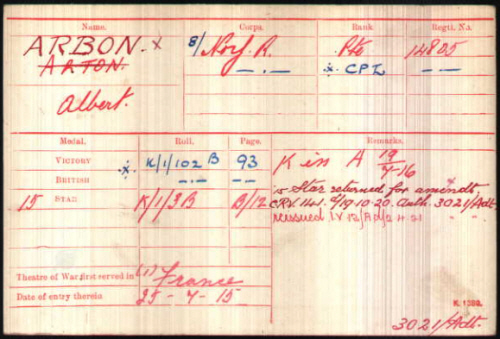 Name. Corps. Rank. Regtl. No.
ARBON. x 8/Norf. R. Pte 14805
ARTON. —.— x. CPL — —
Albert.
Medal. Roll. Page. Remarks.
VICTORY x. K/1/102 B 93 K in A 19/7-16
BRITISH —.— —
15 STAR K/1/3B B/12 15 Star returned for amendt.
CRV. 141. 9/19.10.20. Auth. 3021/Adt
reissued IV
Theatre of War first served in (1) France
Date of entry therein 25-7-15
K. 1380.
3021/Adt.